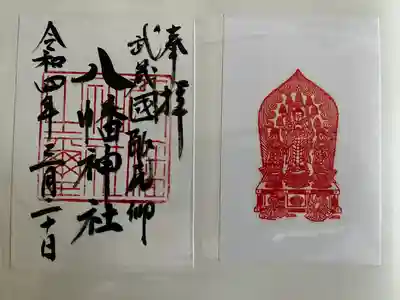 奉拝
武蔵國
八幡神社
令和四年三月二十日